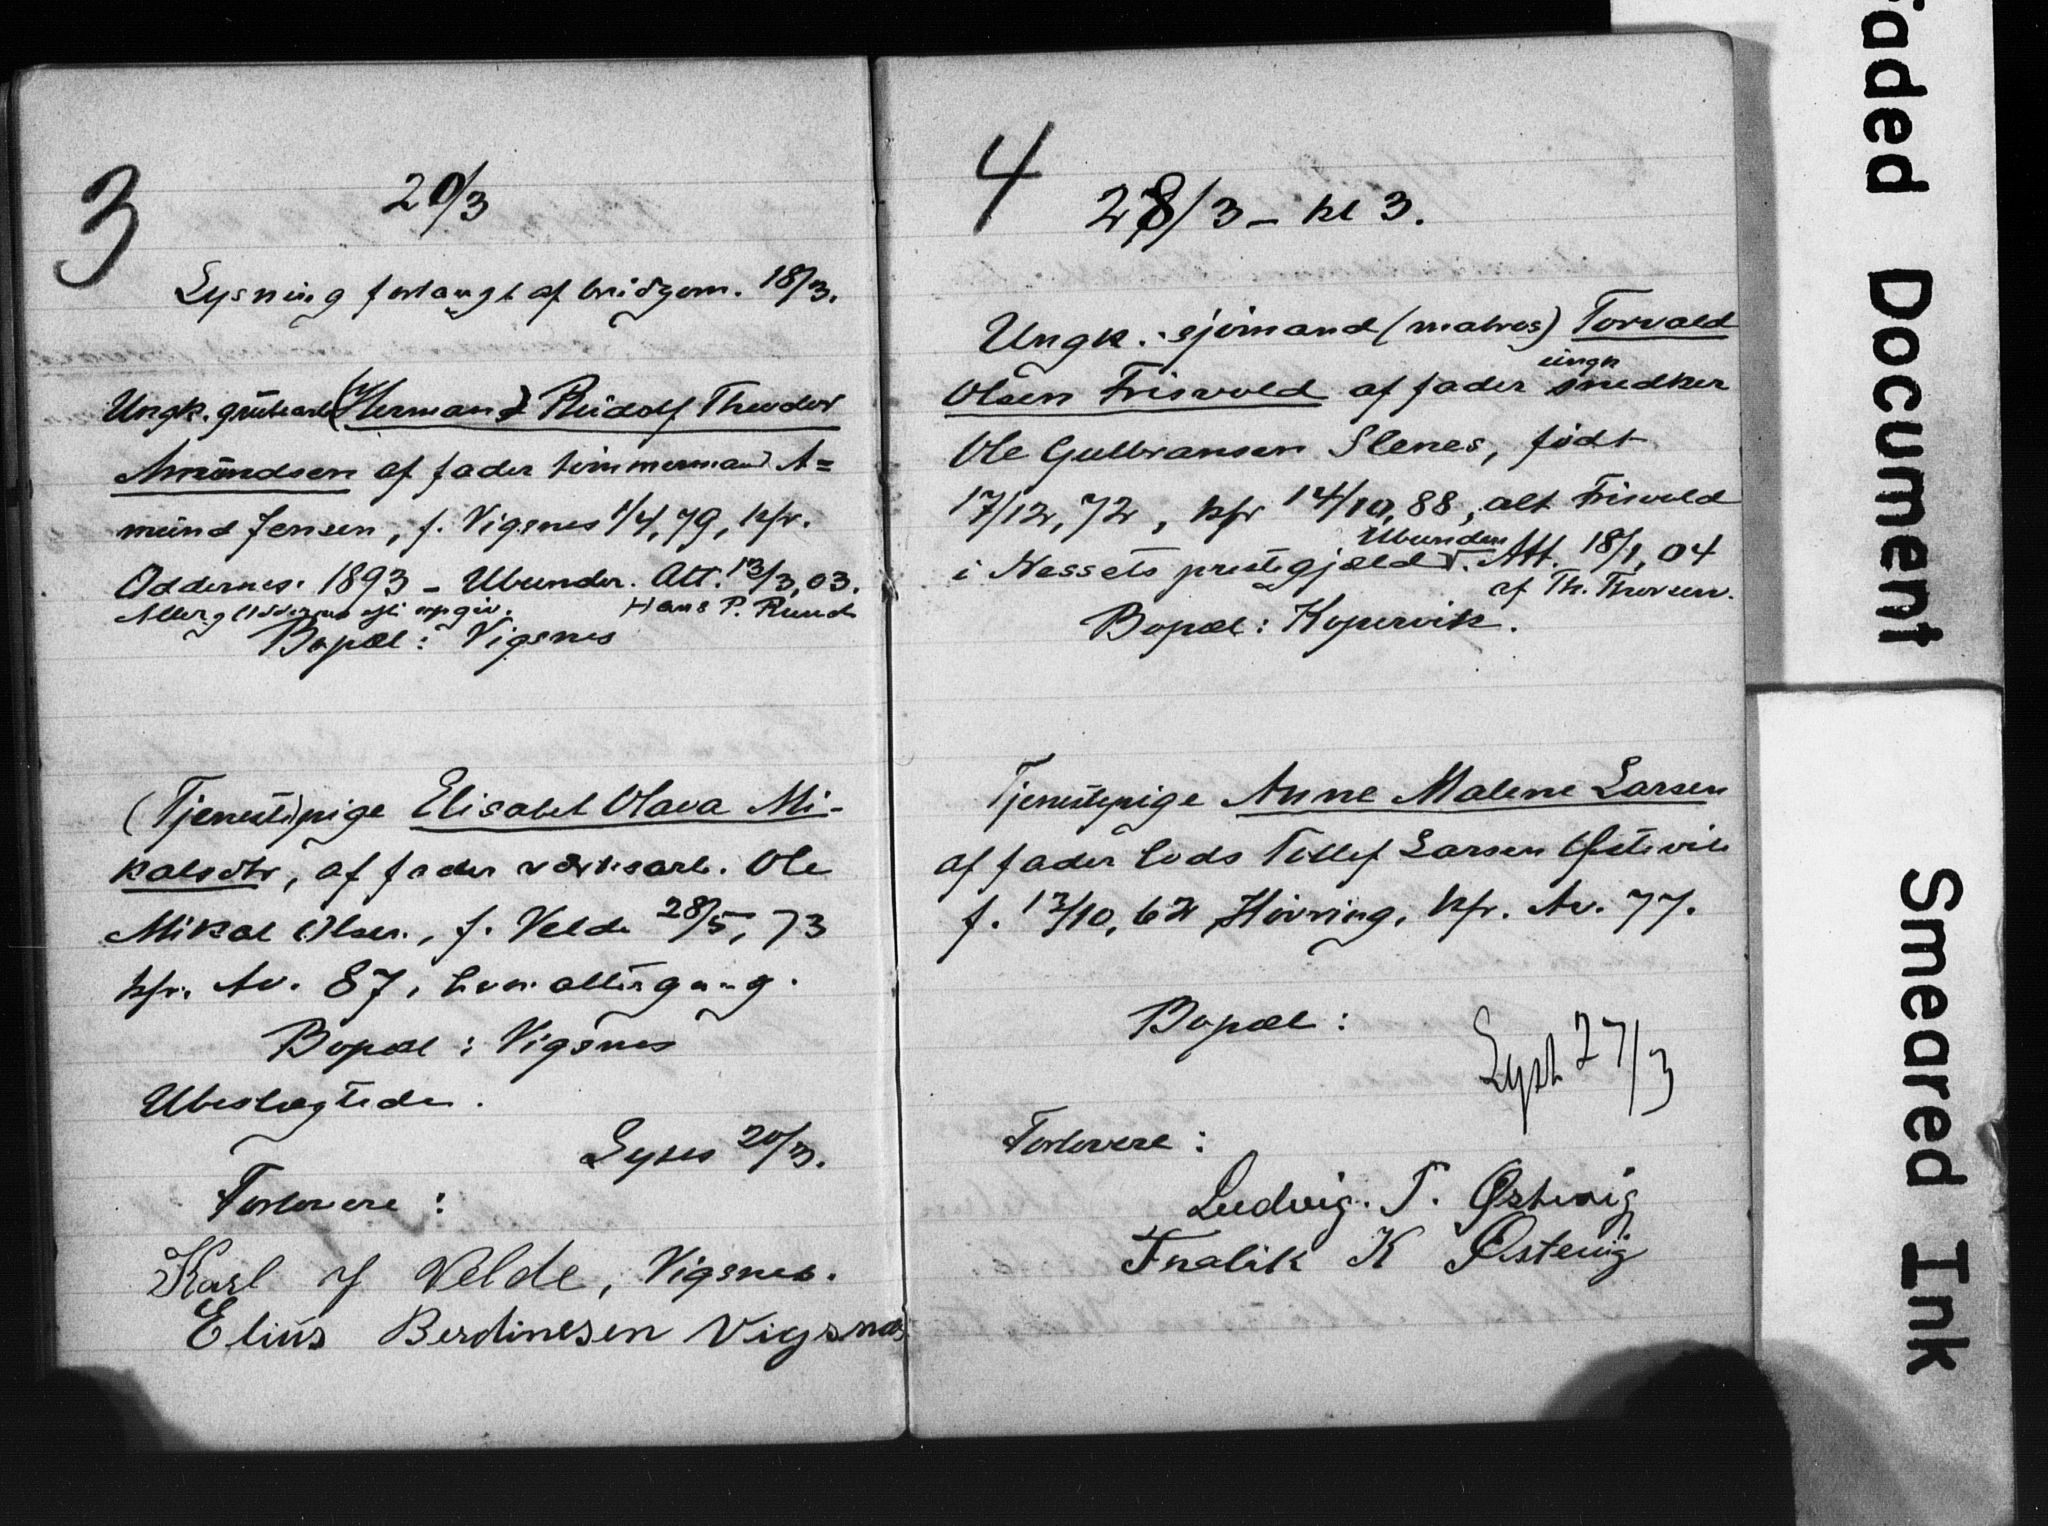 3
20/3
Lysning forlangt af bridgom. 18/3.
Ungk. grubearb (Herman) Rudolf Theodor
Amundsen af fader tømmermand A=
mund Jensen, f. Vigsnes 1/4, 79, kfr.
Oddernes 1893 – Ubunden. Att. 13/3, 03.
Hans P. Rund
Bopæl: Vigsnes
(Tjeneste)pige Elisabet Olava Mi-
kalsdtr, af fader værksarb. Ole
Mikal Olsen, f. Velde 28/5, 73
kfr. Av. 87, altergang.
Bopæl: Vigsnes
Ubeslægtede.
Lyses 20/3.
Forlovere:
Karl J Velde, Vigsnes.
Elius Berdinesen Vigsnæs
4
28/3 – kl 3.
Ungk. sjømand (matros) Torvald
ungk
Olsen Frisvold af fader snedker
Ole Gulbransen Slenes, født
17/12, 72, kfr 14/10, 88, alt Frisvold
Ubunden
i Nessets prestegjæld. Att. 18/1, 04
af Th. Thorsen.
Bopæl: Kopervik.
Tjenestepige Anne Malene Larsen
af fader lods Tollef Larsen Østevik
f. 12/10, 62 Høvring, kfr. Av. 77.
Bopæl:
Lyst 27/3
Forlovere:
Ludvig. T. Østevig
K Østevig
Faded Document
Smeared Ink